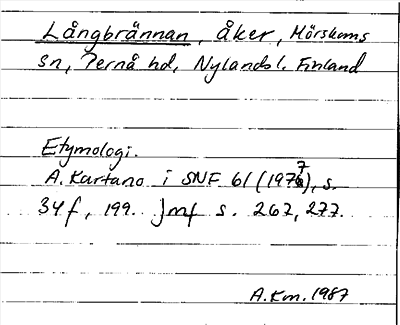 Långbrännan, åker, Mörskoms
sn, Pernå hd, Nylands l. Finland
Etymologi.
A. Kartano i SNF 61 (1977), s.
34 f, 199. Jmf s. 267, 277.
A.Km. 1987